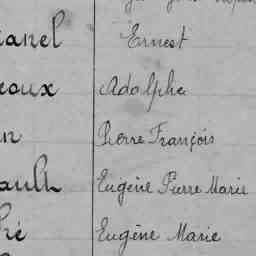 anel Ernest
eaux Adolphe
n Pierre François
ault Eugène Pierre Marie
hé Eugène Marie